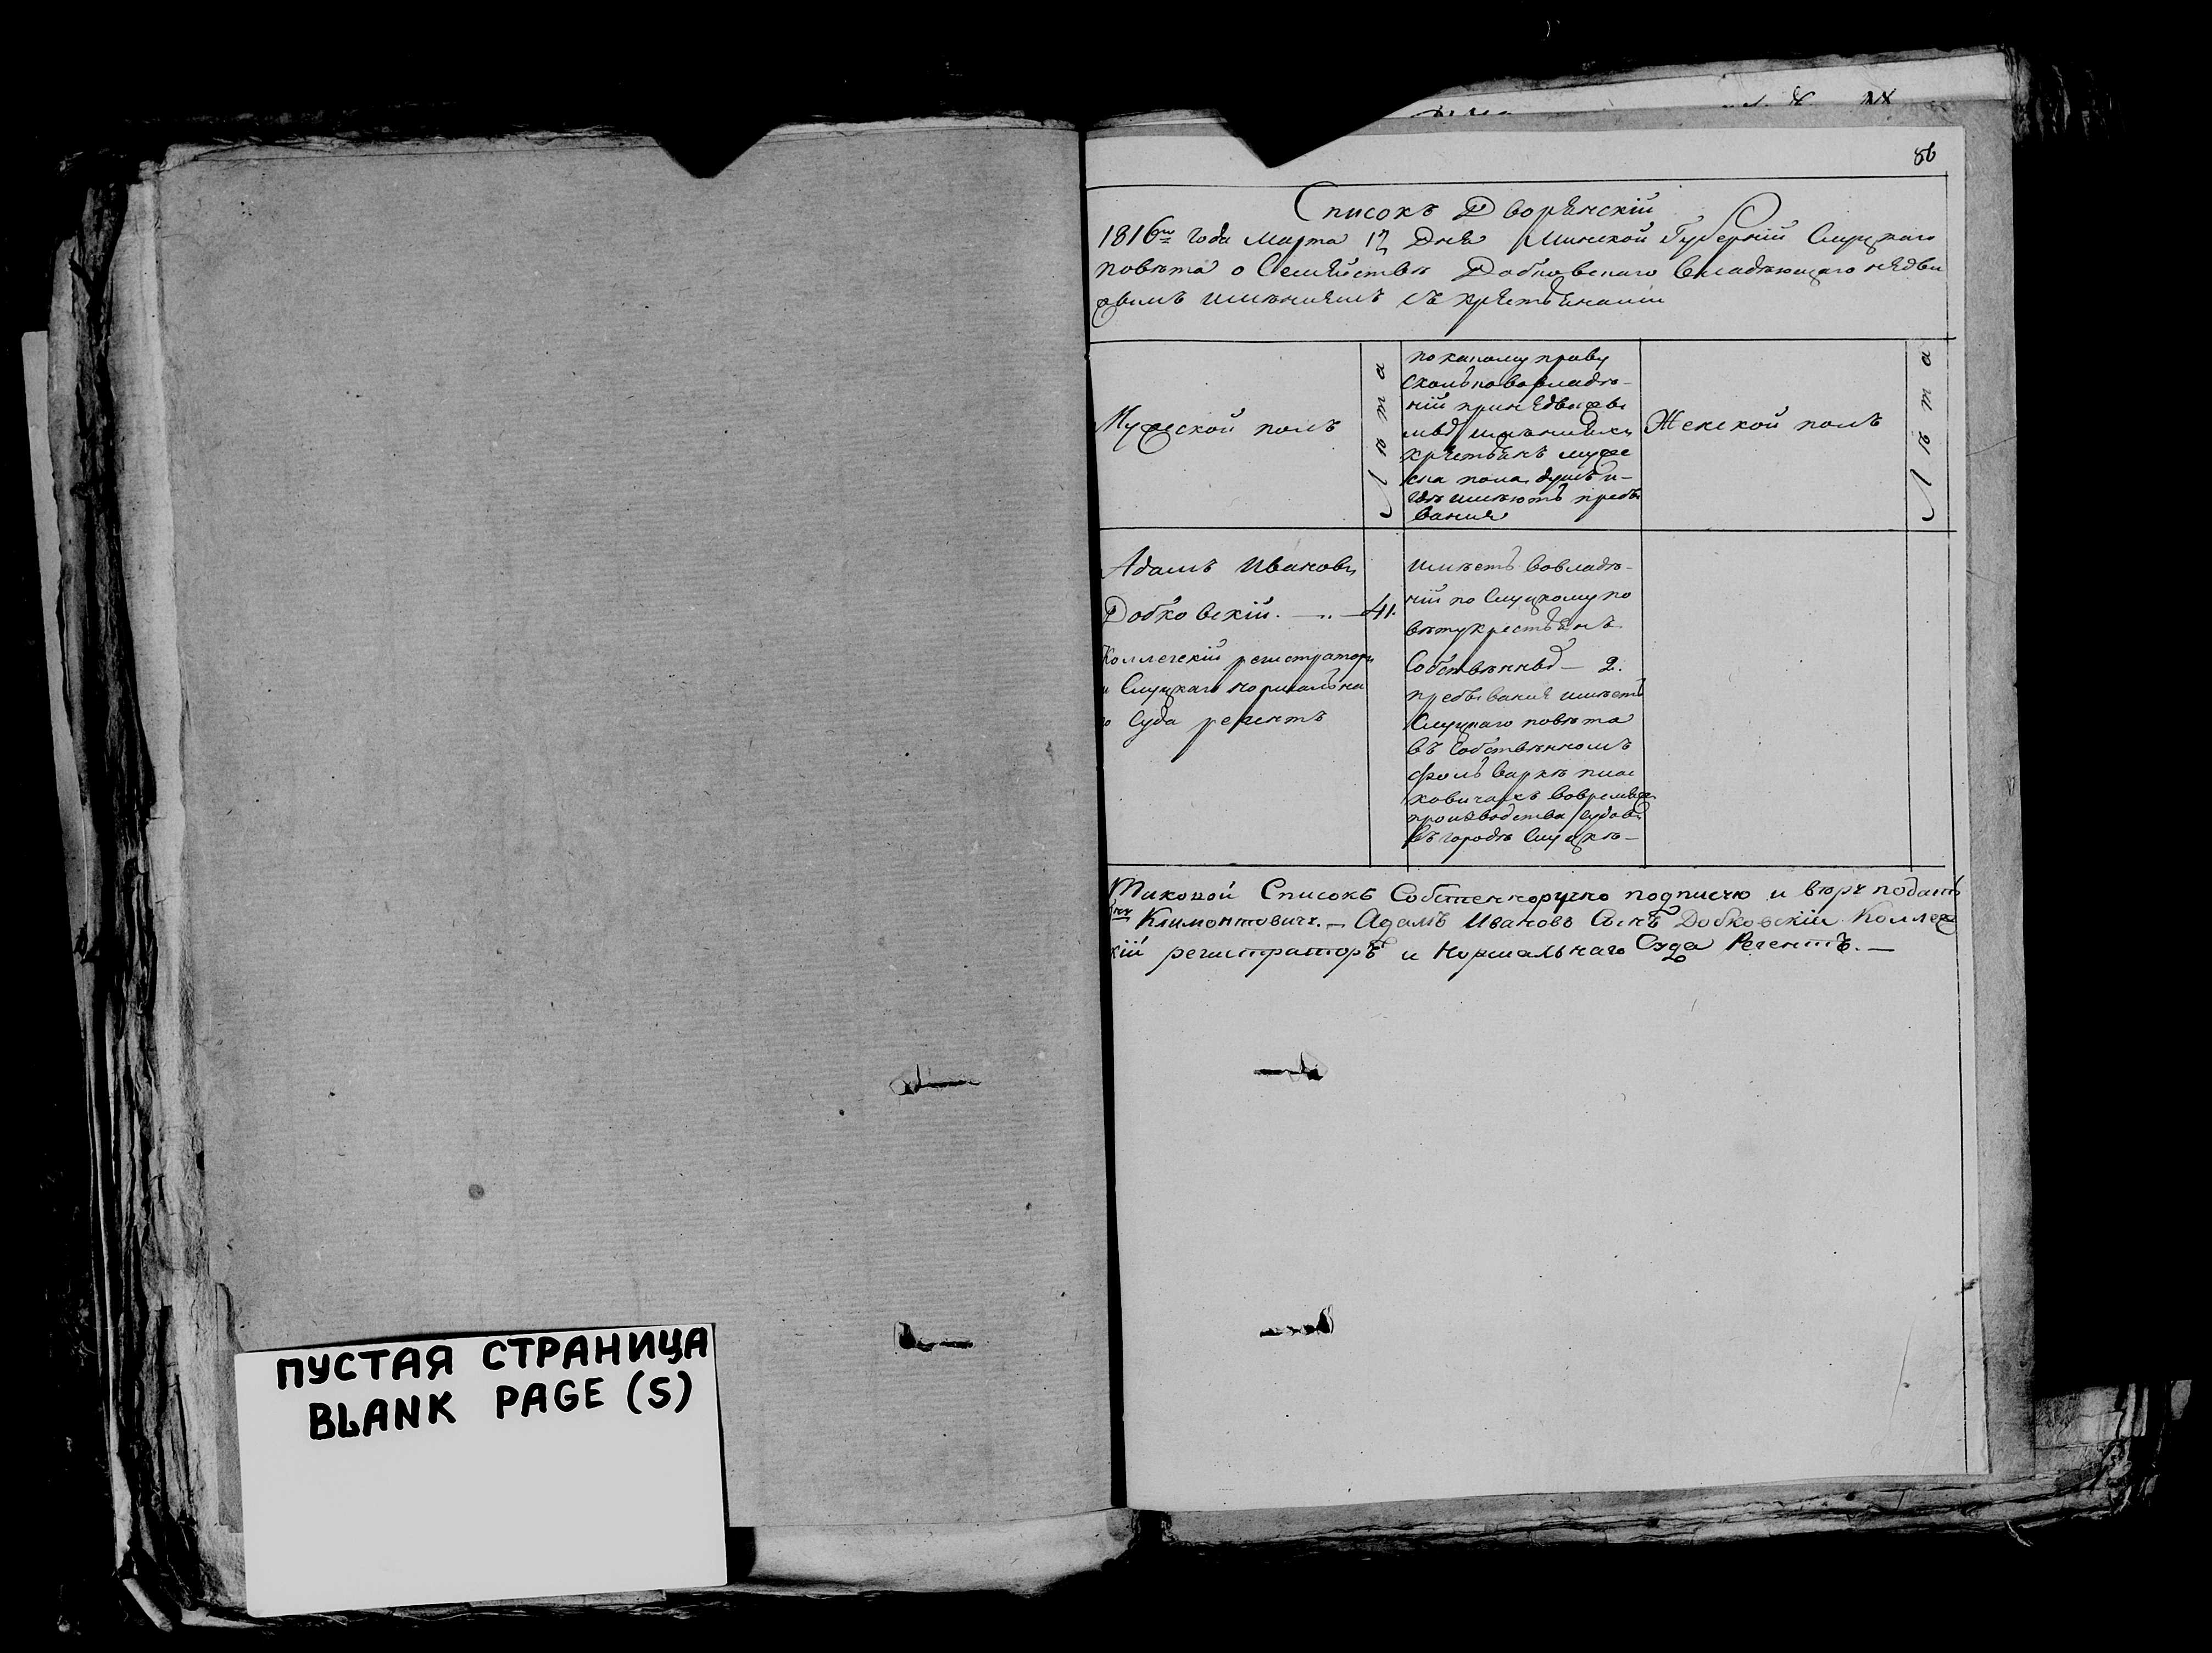 86
Списокъ Дворянскій
1816го года Марта 17 Дня Минской Губерній Слуцкаго
повѣта о Семействѣ Добковскаго Владѣющаго недви
жимъ имѣниемъ съ крестьянами
Мужеской полъ
Лѣта
по какому праву
сколько во владѣ-
ній при недвижи
мыхъ имѣнияхъ
крестьянъ муже
ска пола душъ и-
гдѣ имѣютъ пребы
вания
Женской полъ
Лѣта
Адамъ Ивановъ
Добковскій. — 41.
Коллегскій регистраторъ
и Слуцкаго нормально
го Суда регентъ
имѣетъ во владѣ-
ній по Слуцкому по
вѣту крестьянъ
Собственныхъ — 2.
пребывания имѣетъ
Слуцкаго повѣта
въ собственномъ
фольваркѣ
ковичахъ во время
производства Судовъ
въ городѣ Слуцкѣ —
Таковой Списокъ Собственноручно подписую и подаю
Климонтовичъ. — Адамъ Ивановъ Сынъ Добковскій Коллег
кій регистраторъ и Нормальнаго Суда Регентъ. —
ПУСТАЯ СТРАНИЦА
BLANK PAGE (S)